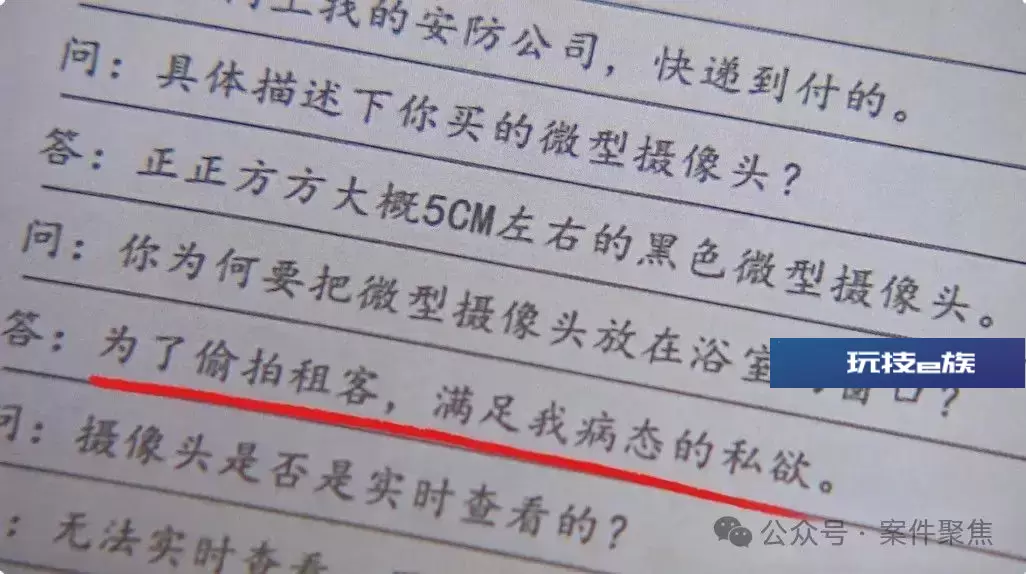 上我的安防公司，快递到付的。
问：具体描述下你买的微型摄像头？
答：正正方方大概5CM左右的黑色微型摄像头。
问：你为何要把微型摄像头放在浴室窗口？
玩技e族
答：为了偷拍租客，满足我病态的私欲。
问：摄像头是否是实时查看的？
：无法实时查看
公众号·案件聚焦